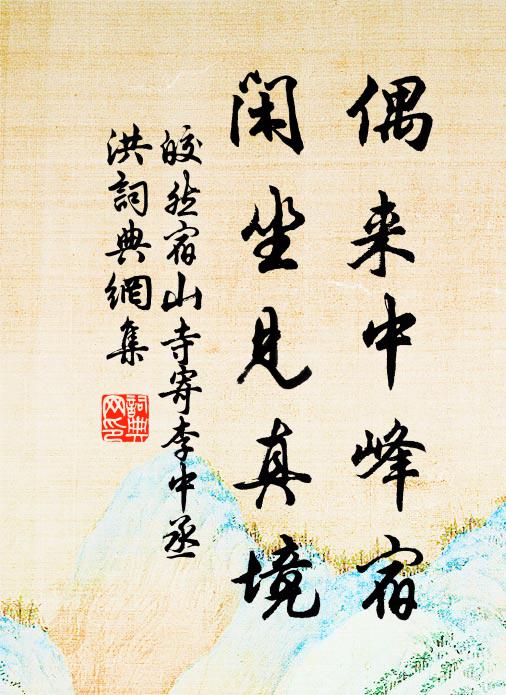 偶来中峰宿
闲坐见真境
皎然宿山寺寄李中丞
洪詞典網集
詞典網印